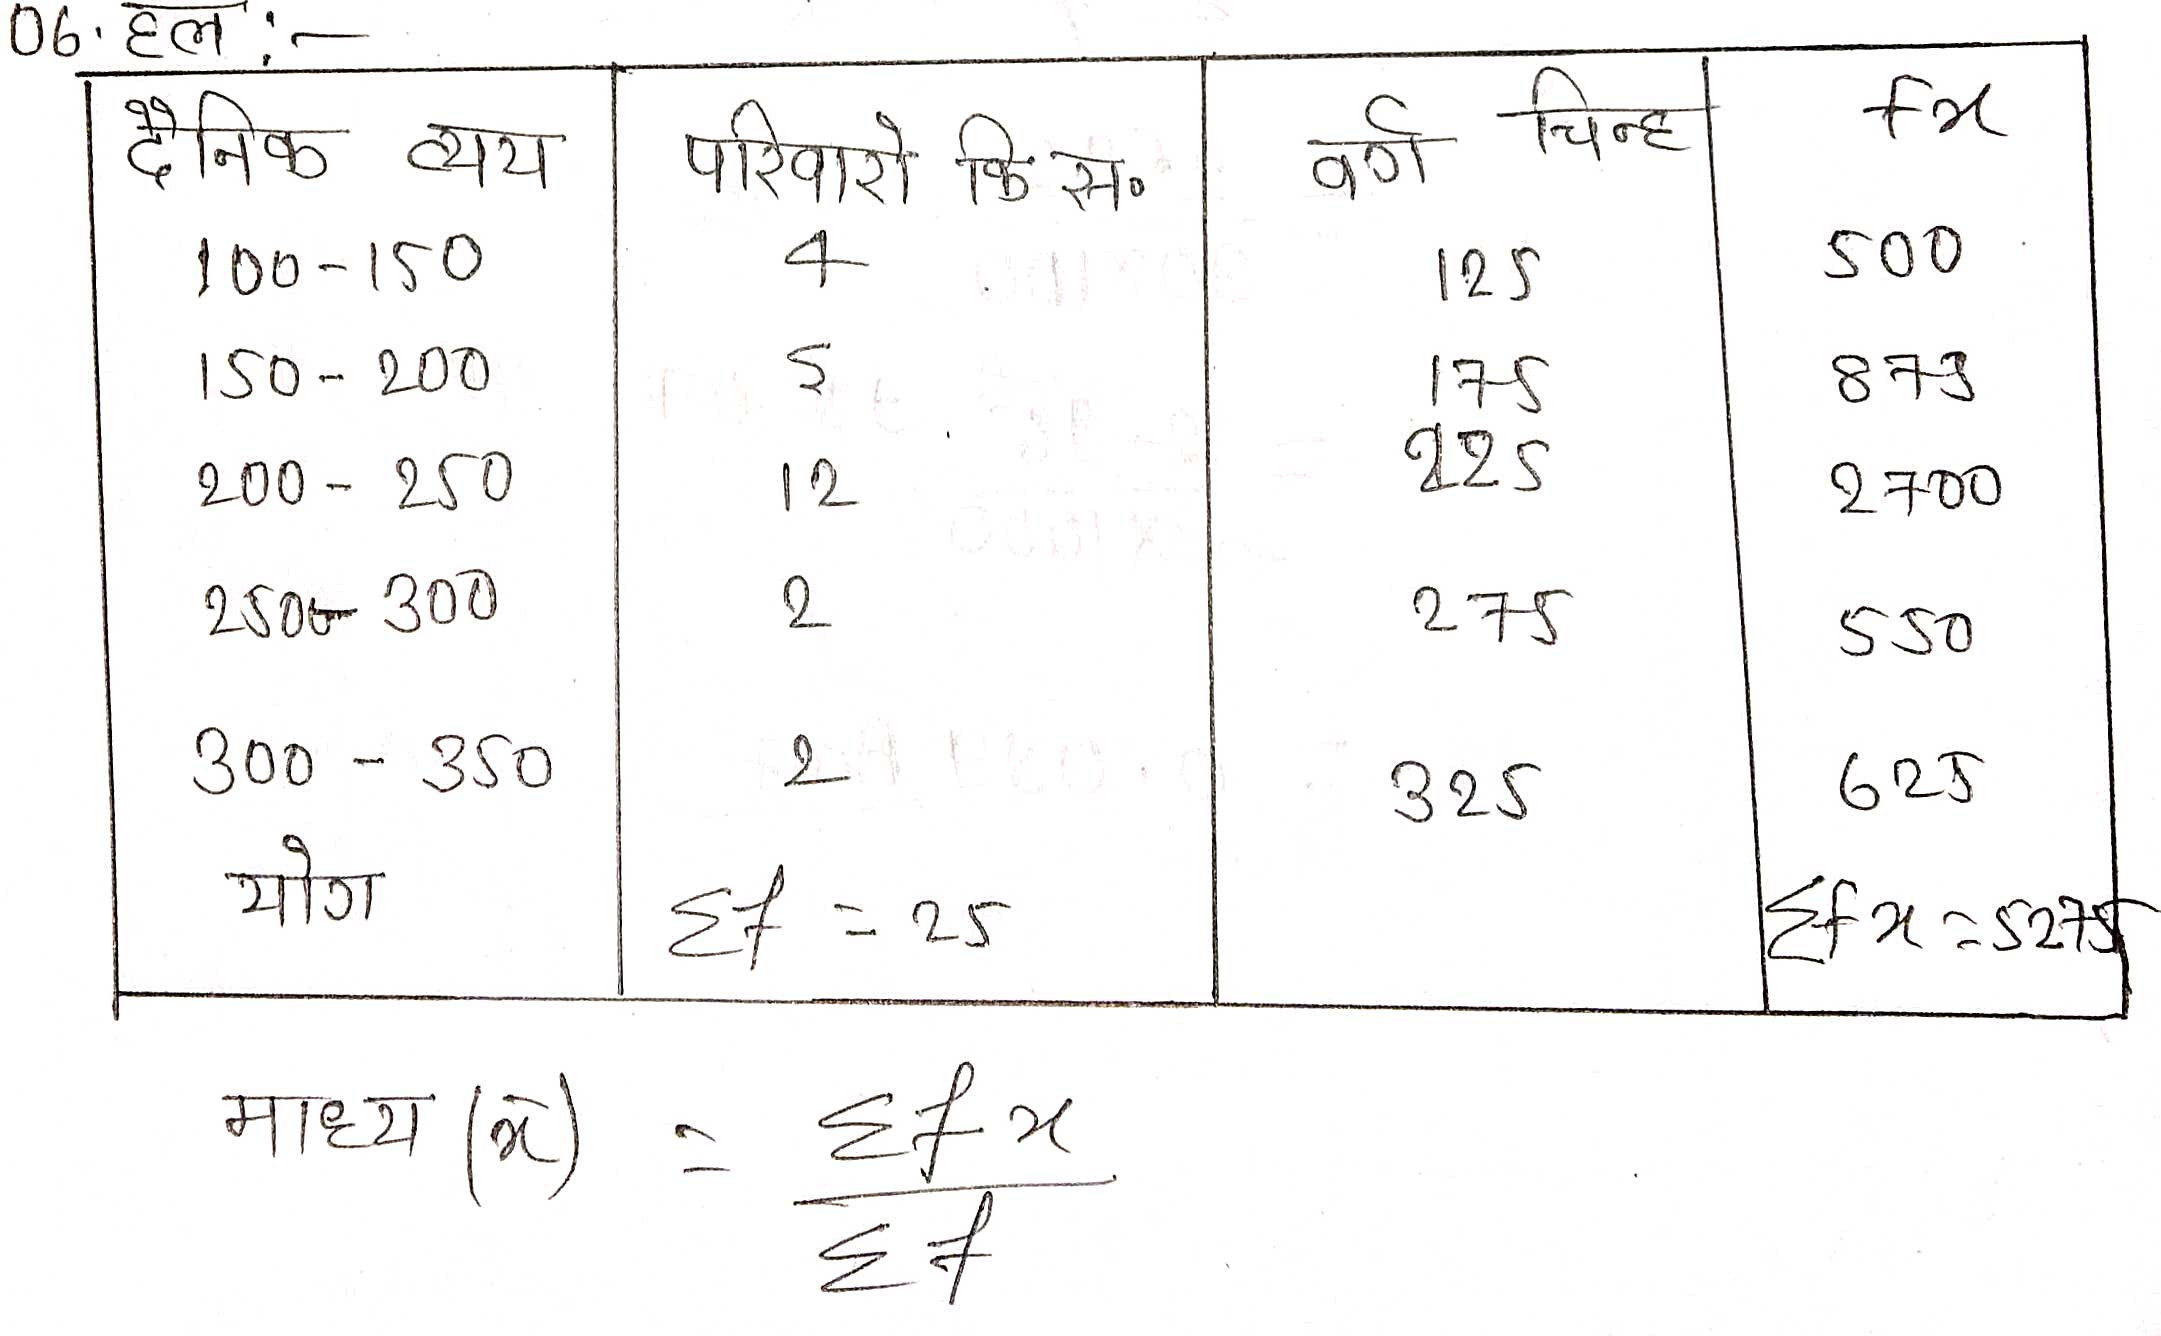 06. हल :-
दैनिक व्यय परिवारो कि स॰ वर्ग चिन्ह fx
100-150 4 125 500
150-200 5 175 875
200-250 12 225 2700
250-300 2 275 550
300-350 2 325 625
योग Σf = 25 Σfx = 5275
माध्य (x̄) = Σfx
Σf